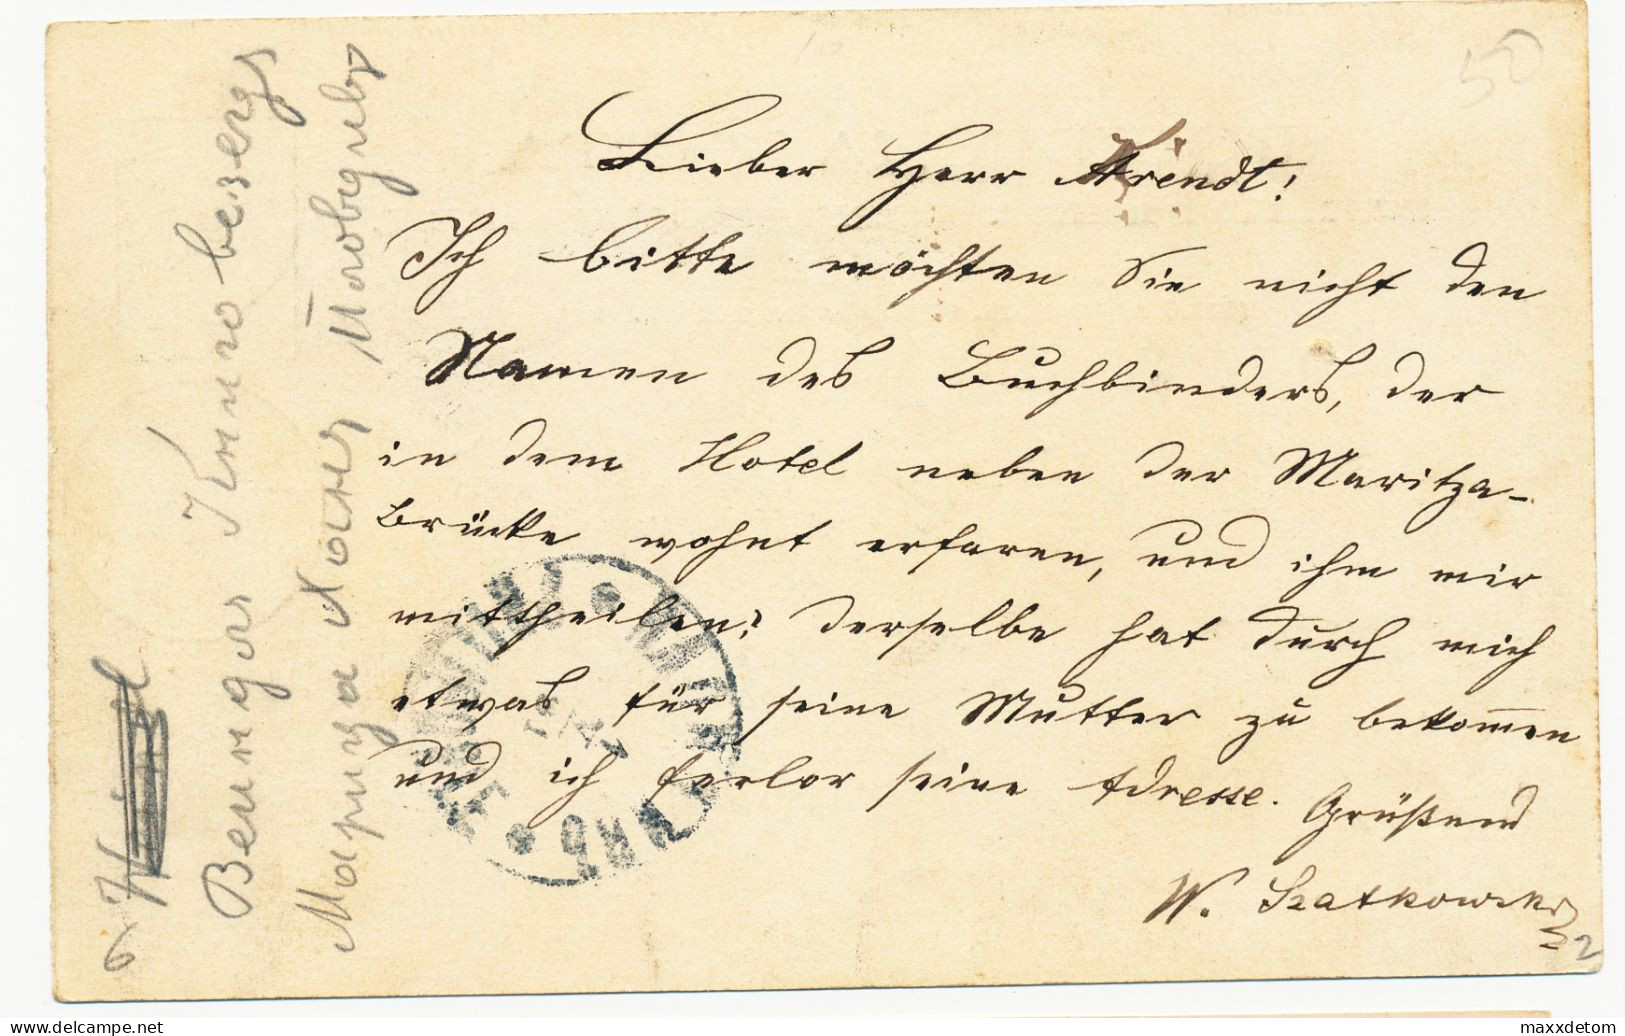 50
Lieber Herr Arendt!
Ich bitte möchten Sie nicht den
Namen des Buchbinders, der
in dem Hotel neben der Maritza-
brücke wohnt erfaren, und ihm mir
mittheilen? Derselbe hat durch mich
etwas für seine Mutter zu bekom̅en
und ich ferlor seine Adresse. Grüßend
W. Szatkowski
2
Марица Пловдивъ
maxxdetom